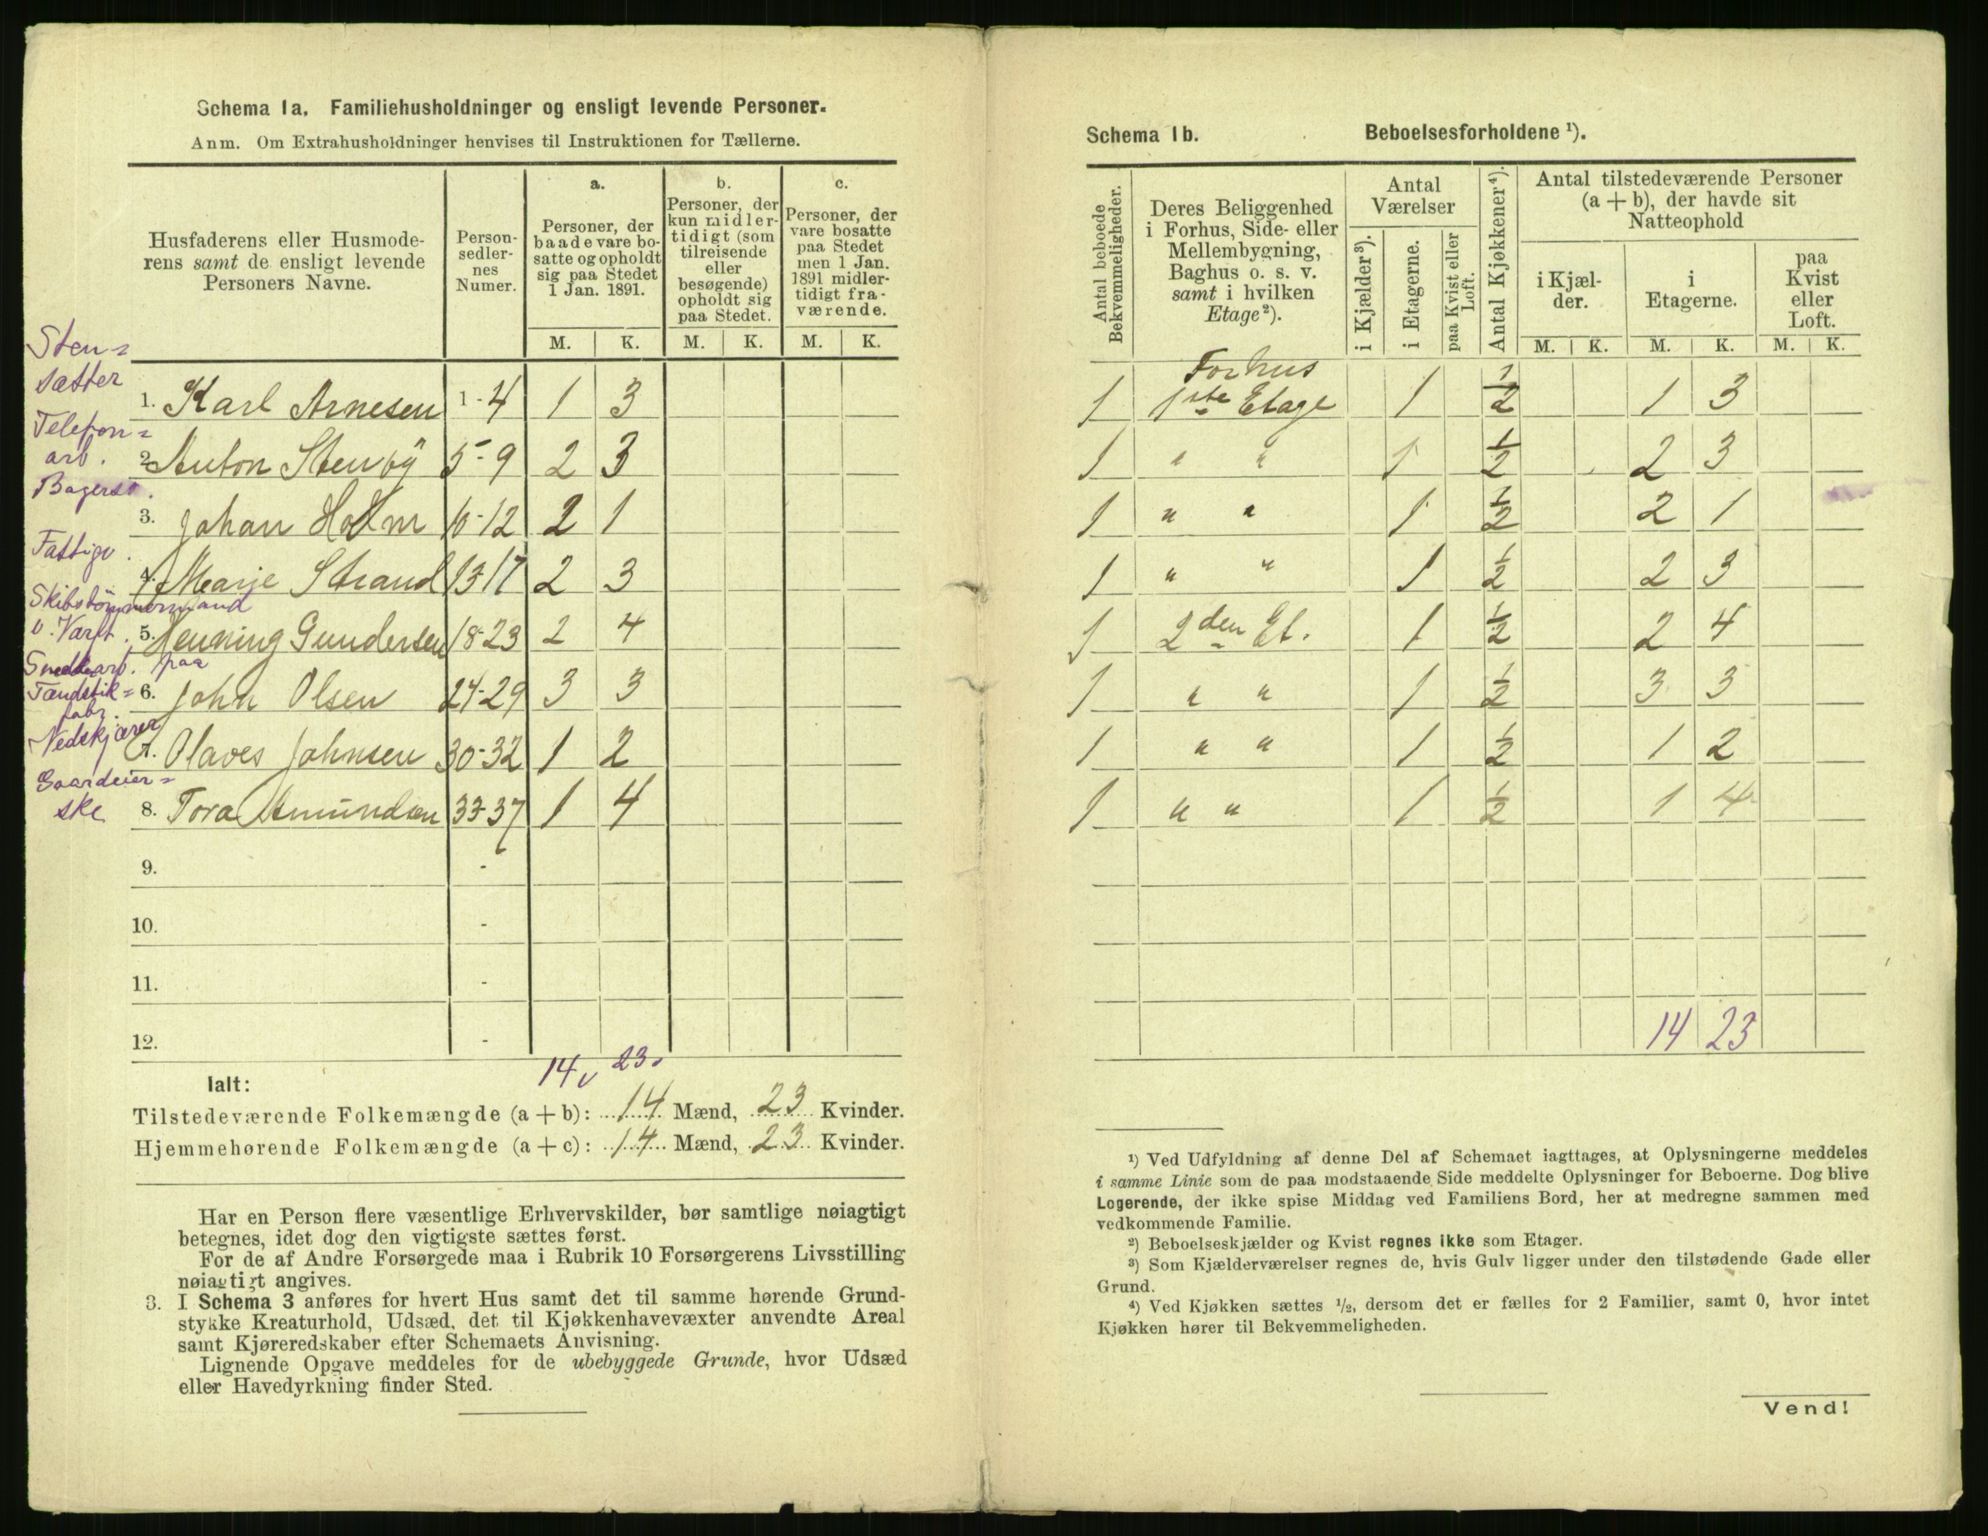 Schema 1a. Familiehusholdninger og ensligt levende Personer.
Anm. Om Extrahusholdninger henvises til Instruktionen for Tællerne.
Husfaderens eller Husmode-
rens samt de ensligt levende
Personers Navne.
Person-
sedler-
nes
Numer.
a.
Personer, der
baade vare bo-
satte og opholdt
sig paa Stedet
1 Jan. 1891.
b.
Personer, der
kun midler-
tidigt (som
tilreisende
eller
besøgende)
opholdt sig
paa Stedet.
c.
Personer, der
vare bosatte
paa Stedet
men 1 Jan.
1891 midler-
tidigt fra-
værende.
M. K. M. K. M. K.
Sten=
sætter
1. Karl Arnesen 1-4 1 3
Telefon=
arb.
2. Anton Stenby 5-9 2 3
Bagersv.
3. Johan Holm 10-12 2 1
Fattigv.
4. Marje Strand 13-17 2 3
Skibstømmermand
v. Værft.
5. Henning Gundersen 18-23 2 4
paa
Tændstik=
fabr.
6. John Olsen 24-29 3 3
Vedskjærer
7. Olaves Johnsen 30-32 1 2
Gaardeier=
ske
8. Tora Amundsen 33-37 1 4
9. -
10. -
11. -
12. -
14 23
Ialt:
Tilstedeværende Folkemængde (a+b): 14 Mænd, 23 Kvinder.
Hjemmehørende Folkemængde (a+c): 14 Mænd, 23 Kvinder.
Har en Person flere væsentlige Erhvervskilder, bør samtlige nøiagtigt
betegnes, idet dog den vigtigste sættes først.
For de af Andre Forsørgede maa i Rubrik 10 Forsørgerens Livsstilling
nøiagtigt angives.
3. I Schema 3 anføres for hvert Hus samt det til samme hørende Grund-
stykke Kreaturhold, Udsæd, det til Kjøkkenhavevæxter anvendte Areal
samt Kjøreredskaber efter Schemaets Anvisning.
Lignende Opgave meddeles for de ubebyggede Grunde, hvor Udsæd
eller Havedyrkning finder Sted.
Schema 1b. Beboelsesforholdene ¹).
Antal beboede
Bekvemmeligheder.
Deres Beliggenhed
i Forhus, Side- eller
Mellembygning,
Baghus o. s. v.
samt i hvilken
Etage²).
Antal
Værelser
i Kjælder³).
i Etagerne.
paa Kvist eller
Loft.
Antal Kjøkkener⁴).
Antal tilstedeværende Personer
(a + b), der havde sit
Natteophold
i Kjæl-
der.
i
Etagerne.
paa
Kvist
eller
Loft.
M. K. M. K. M. K.
Forhus
1 1ste Etage 1 1/2 1 3
1 " " 1 1/2 2 3
1 " " 1 1/2 2 1
1 " " 1 1/2 2 3
1 2den Et. 1 1/2 2 4
1 " " 1 1/2 3 3
1 " " 1 1/2 1 2
1 " " 1 1/2 1 4
14 23
¹) Ved Udfyldning af denne Del af Schemaet iagttages, at Oplysningerne meddeles
i samme Linie som de paa modstaaende Side meddelte Oplysninger for Beboerne. Dog blive
Logerende, der ikke spise Middag ved Familiens Bord, her at medregne sammen med
vedkommende Familie.
²) Beboelseskjælder og Kvist regnes ikke som Etager.
³) Som Kjælderværelser regnes de, hvis Gulv ligger under den tilstødende Gade eller
Grund.
⁴) Ved Kjøkken sættes ¹/₂, dersom det er fælles for 2 Familier, samt 0, hvor intet
Kjøkken hører til Bekvemmeligheden.
Vend!